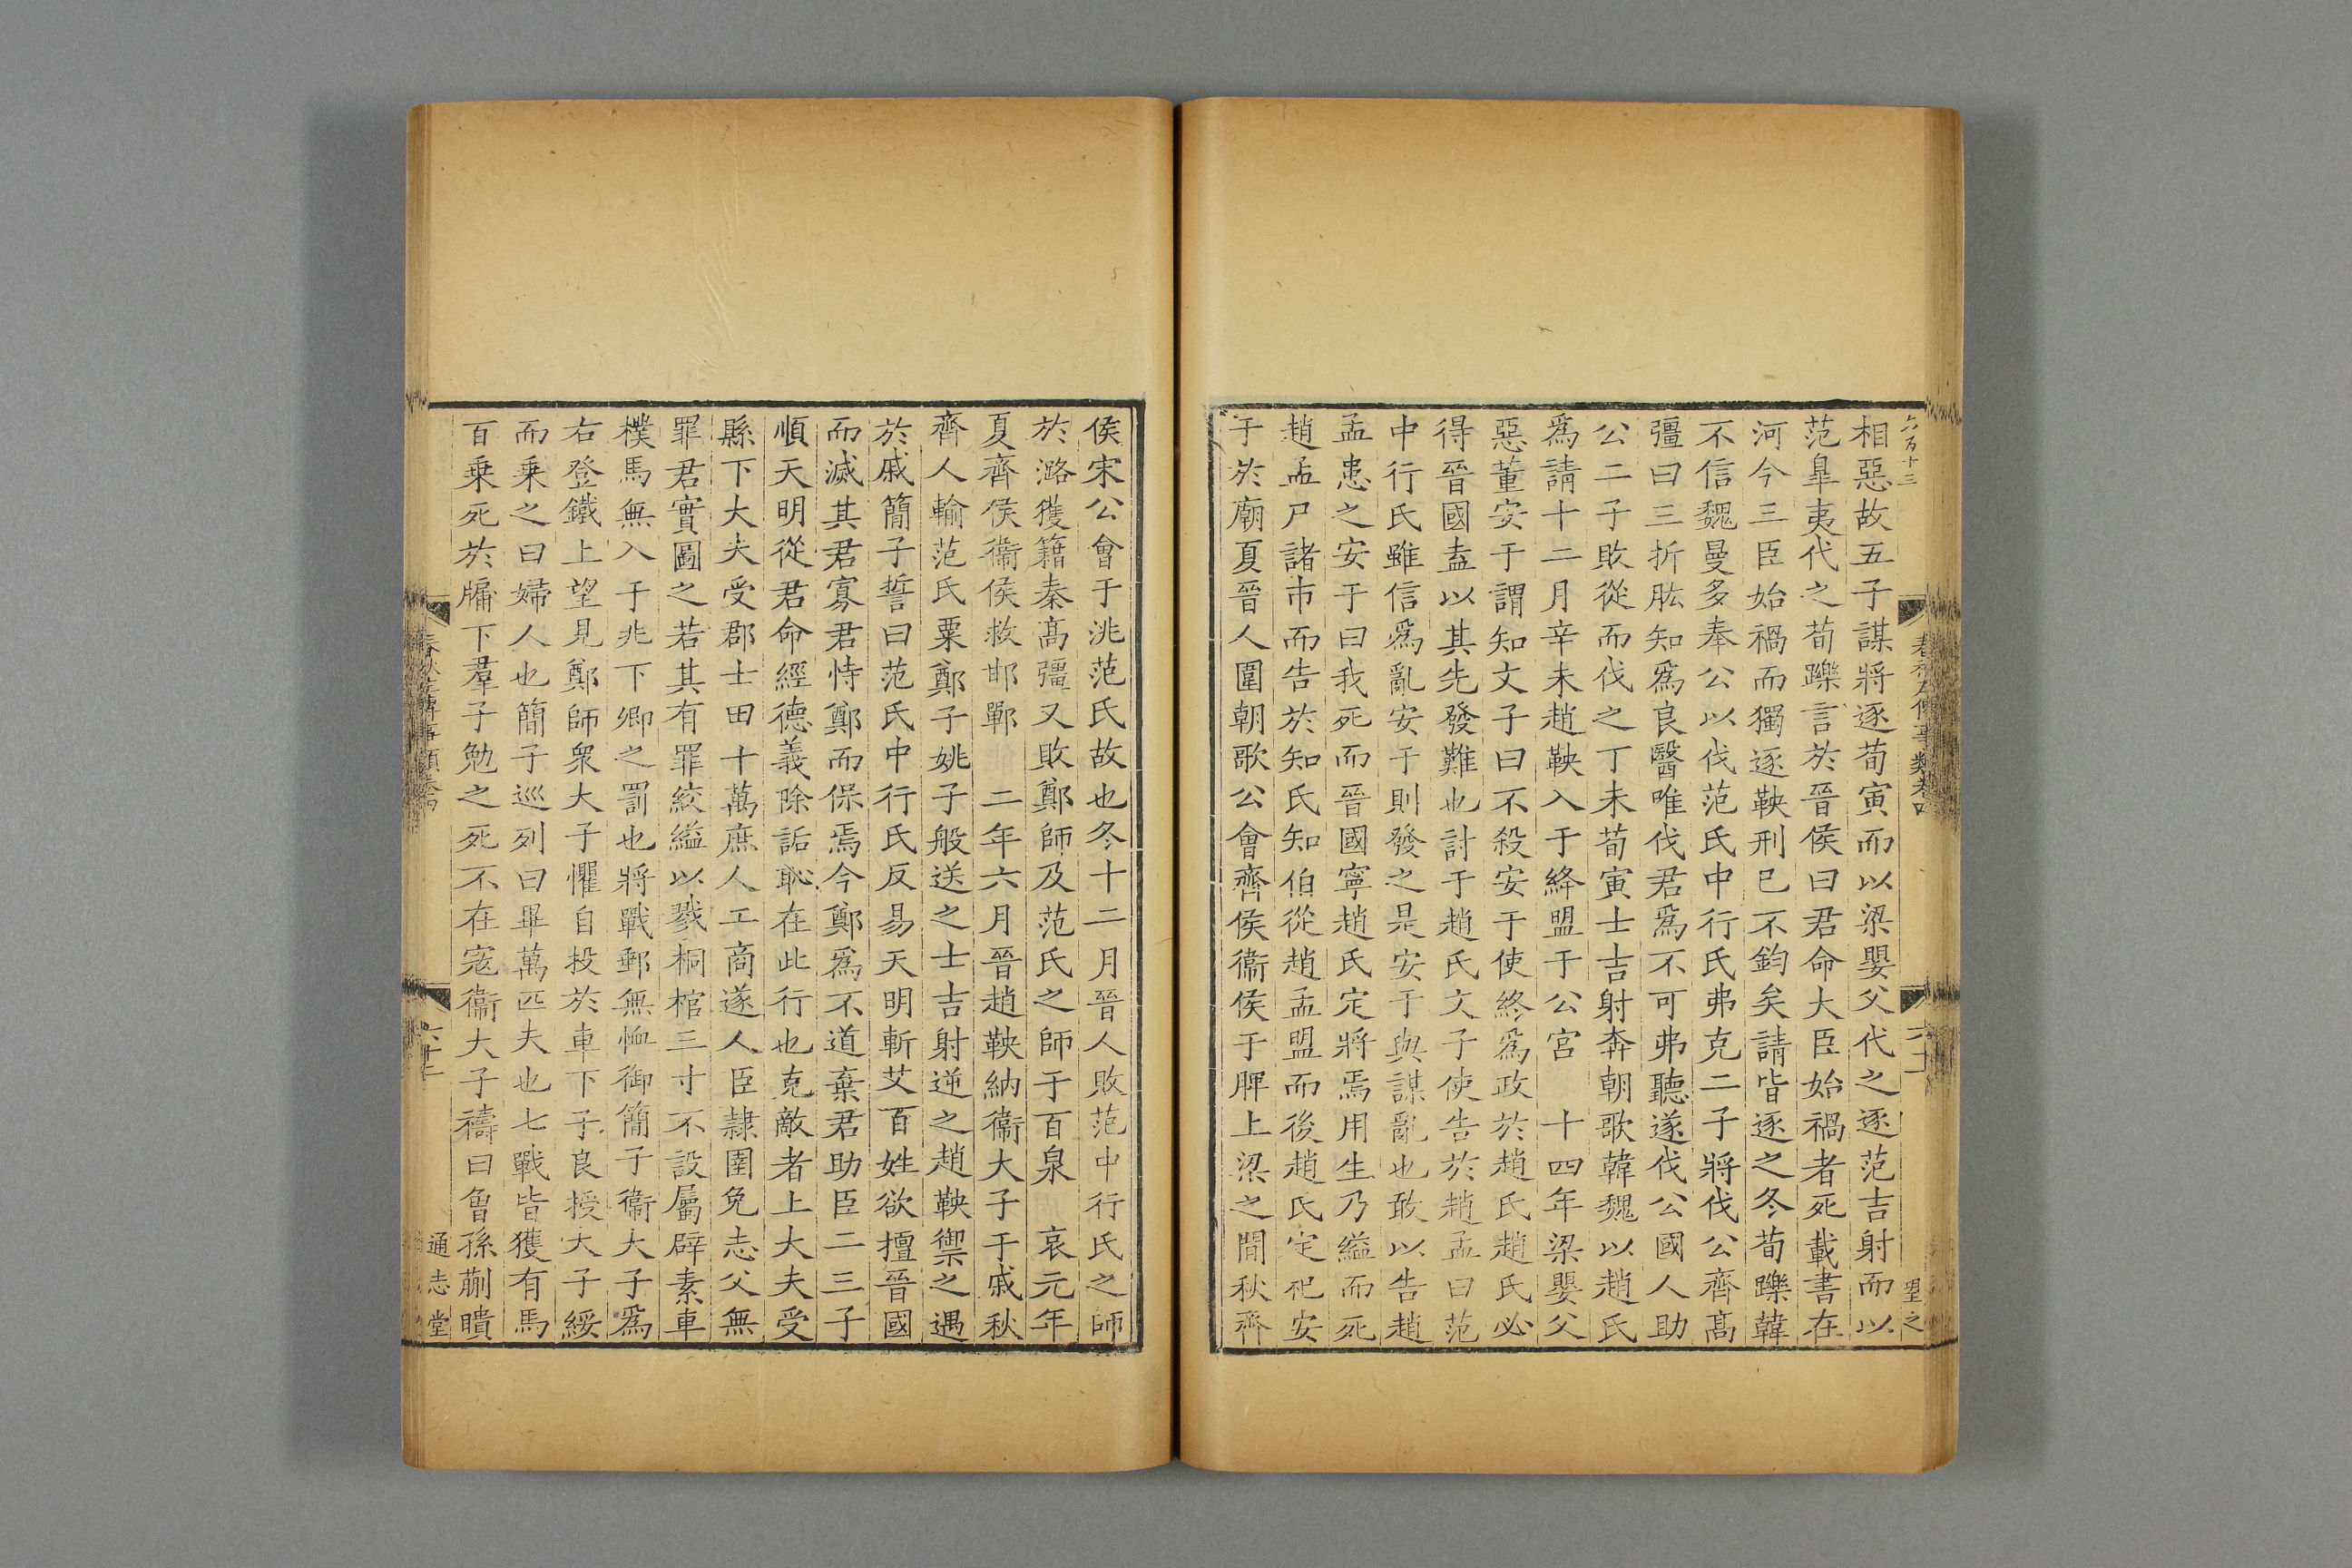 相惡故五子謀將逐荀寅而以梁嬰父代之逐范吉射而以
范臯夷代之荀躒言於晉侯曰君命大臣始禍者死載書在
河今三臣始禍而獨逐鞅刑已不鈞矣請皆逐之冬荀躒韓
不信魏曼多奉公以伐范氏中行氏弗克二子將伐公齊髙
彊曰三折肱知爲良醫唯伐君爲不可弗聽遂伐公國人助
公二子敗從而伐之丁未荀寅士吉射奔朝歌韓魏以趙氏
爲請十二月辛未趙鞅入于絳盟于公宮　十四年梁嬰父
惡董安于謂知文子曰不殺安于使終爲政於趙氏趙氏必
得晉國盍以其先發難也討于趙氏文子使告於趙孟曰范
中行氏雖信爲亂安于則發之是安于與謀亂也敢以告趙
孟患之安于曰我死而晉國寧趙氏定將焉用生乃縊而死
趙孟尸諸市而告於知氏知伯從趙孟盟而後趙氏定祀安
于於廟夏晉人圍朝歌公會齊侯衞侯于脾上梁之間秋齊
侯宋公會于洮范氏故也冬十二月晉人敗范中行氏之師
於潞獲籍秦髙彊又敗鄭師及范氏之師于百泉　哀元年
夏齊侯衞侯救邯鄲　二年六月晉趙鞅納衞大子于戚秋
齊人輸范氏粟鄭子姚子般送之士吉射逆之趙鞅禦之遇
於戚簡子誓曰范氏中行氏反易天明斬艾百姓欲擅晉國
而滅其君寡君恃鄭而保焉今鄭爲不道棄君助臣二三子
順天明從君命經德義除詬恥在此行也克敵者上大夫受
縣下大夫受郡士田十萬庶人工商遂人臣隷圉免志父無
罪君實圖之若其有罪絞縊以戮桐棺三寸不設屬辟素車
樸馬無入于兆下卿之罰也將戰郵無恤御簡子衞大子爲
右登鐵上望見鄭師衆大子懼自投於車下子良授大子綏
而乗之曰婦人也簡子巡列曰畢萬匹夫也七戰皆獲有馬
百乗死於牖下羣子勉之死不在寇衞大子禱曰曾孫蒯聵
六百十三
春秋左傳事類卷四
六十
望之
六十
通志堂